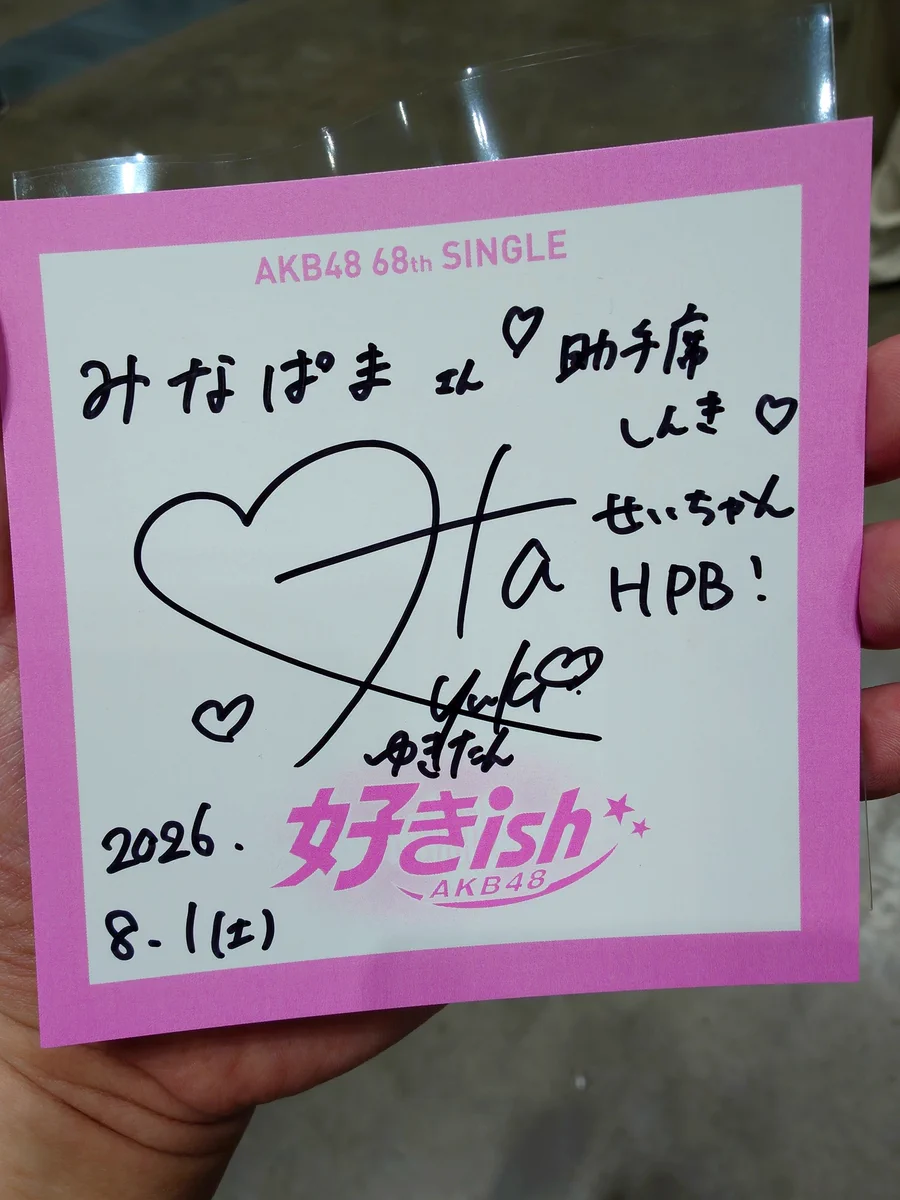 AKB48 68th SINGLE
みなぱま さん♡
助手席
しんき♡
せいちゃん
HPB!
Ta
yuki♡
ゆきたん
2026.
8.1(土)
好きish
AKB48